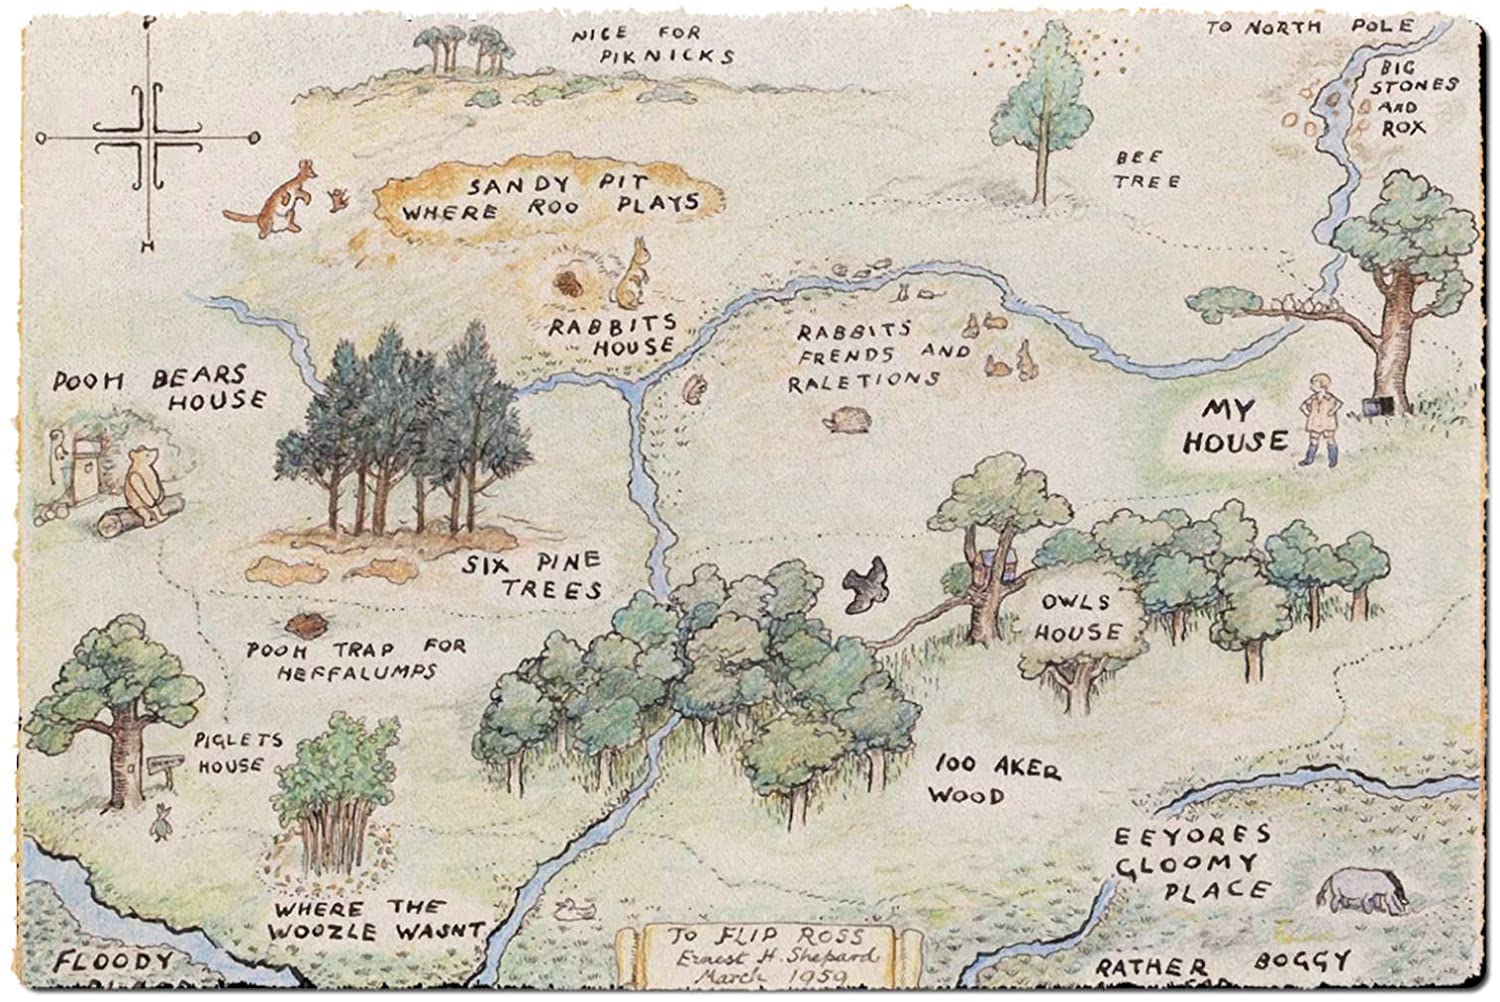 P
H
NICE FOR
PIKNICKS
TO NORTH POLE
BIG
STONES
AND
ROX
BEE
TREE
SANDY PIT
WHERE ROO PLAYS
RABBITS
HOUSE
RABBITS
FRENDS AND
RALETIONS
POOH BEARS
HOUSE
MY
HOUSE
SIX PINE
TREES
OWLS
HOUSE
POOH TRAP FOR
HEFFALUMPS
PIGLETS
HOUSE
100 AKER
WOOD
EEYORES
GLOOMY
PLACE
WHERE THE
WOOZLE WASNT
FLOODY
RATHER BOGGY
TO FLIP ROSS
Ernest H. Shepard
March 1959